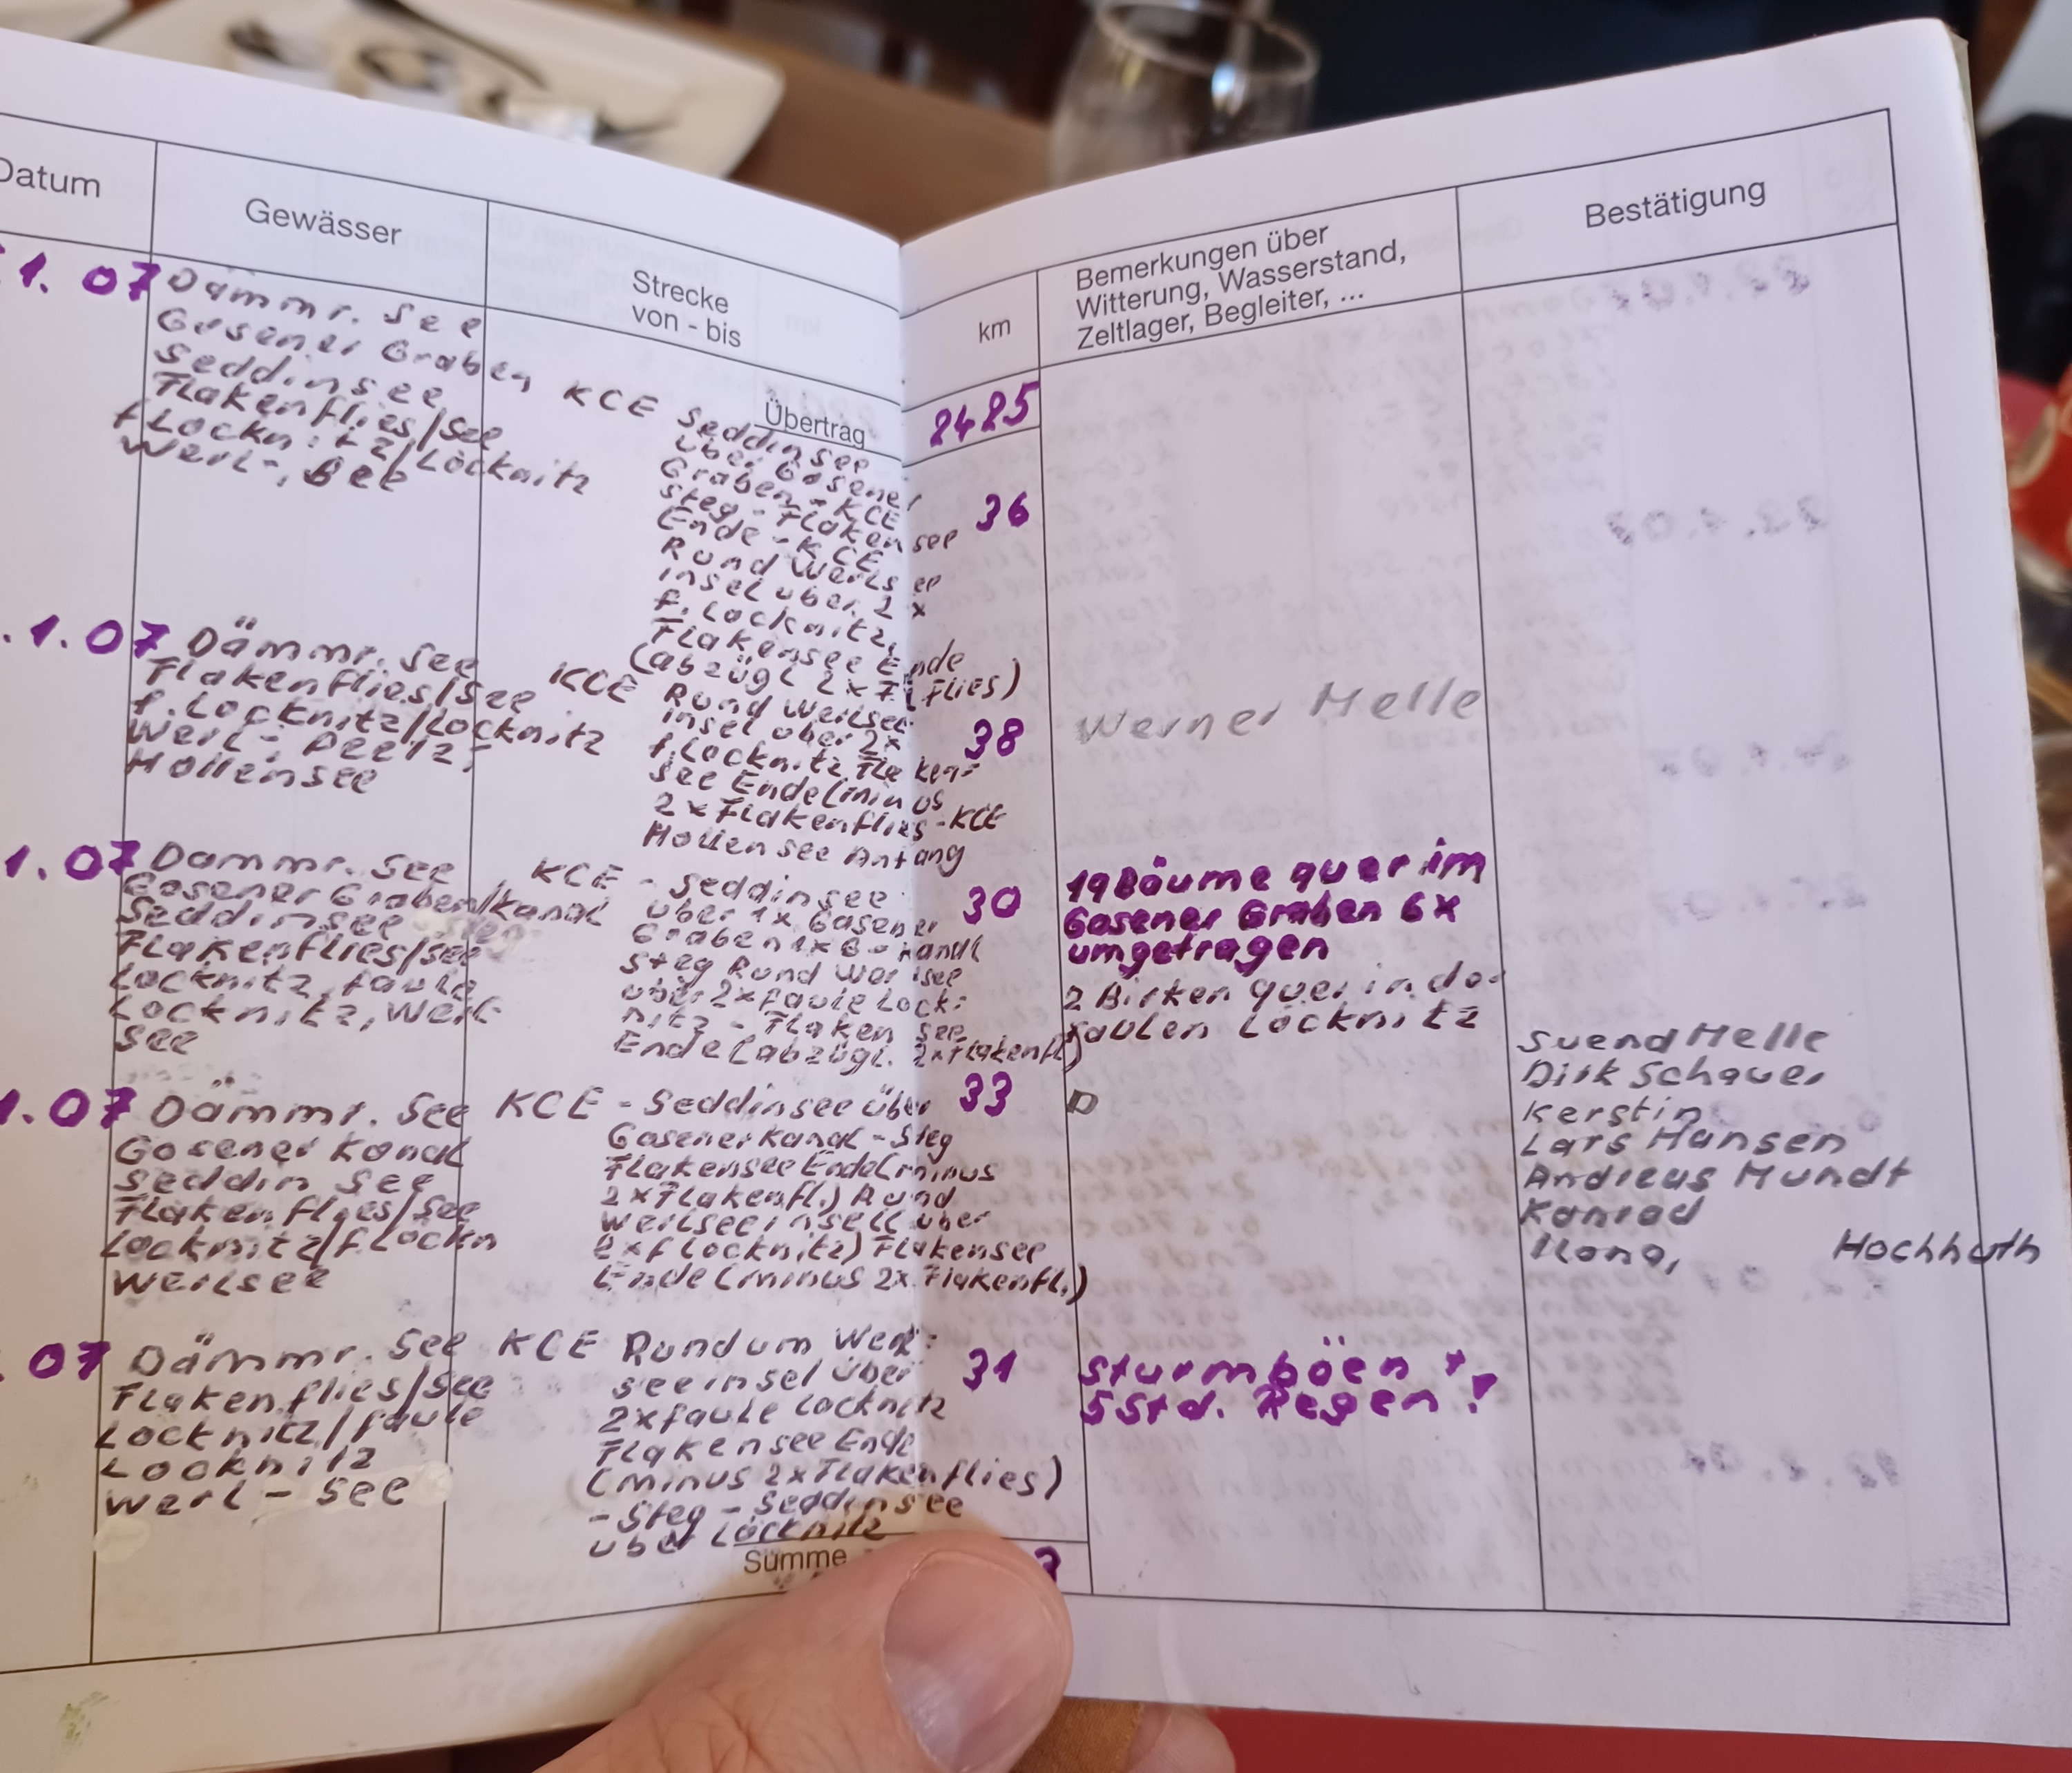 Datum
Gewässer
Strecke
von - bis
km
Bemerkungen über
Witterung, Wasserstand,
Zeltlager, Begleiter, ...
Bestätigung
Übertrag
2485
1. 07
Dämmr. See
Gosener Graben
Seddinsee
Flakenflies/See
f Löckn: tz/Löcknitz
Werl-, See
KCE Seddinsee
über Gosener
Graben - KCE
Steg - Flakensee
Ende - KCE
Rund Werlsee
insel über 2x
f. Löcknitz,
Flakensee Ende
(abzügl 2x Fl flies)
36
.1.07
Dämmr. See
Flakenflies/See
f. Löcknitz/Löcknitz
Werl-, Peetz-
Möllensee
KCE Rund Werlsee
insel über 2x
f. Löcknitz Flaken-
see Ende (minus
2x Flakenflies - KCE
Möllensee Anfang
38
Werner Melle
1.07
Dämmr. See
Gosener Graben/Kanal
Seddinsee
Flakenflies/See
Löcknitz, faule
Löcknitz, Werl-
see
KCE - Seddinsee
über 1x Gosener
Graben 1x G-Kanal
Steg Rund Werlsee
über 2x faule Löck:
nitz - Flakensee
Ende (abzügl. 2x Flakenfl)
30
19 Bäume quer im
Gosener Graben 6x
umgetragen
2 Birken quer in der
faulen Löcknitz
1.07
Dämmr. See
Gosener Kanal
Seddin See
Flakenflies/See
Löcknitz/f. Löckn
Werlsee
KCE - Seddinsee über
Gosener Kanal - Steg
Flakensee Ende (minus
2x Flakenfl.) Rund
Werlseeinsel über
2x f Löcknitz) Flakensee
Ende (minus 2x Flakenfl.)
33
Suend Melle
Dirk Schauer
Kerstin
Lars Hansen
Andreas Mundt
Konrad
Ilona, Hochhuth
07
Dämmr. See
Flakenflies/See
Löcknitz/faule
Löcknitz
Werl - See
KCE Rund um Werl:
seeinsel über
2x faule Löcknitz
Flakensee Ende
(minus 2x Flakenflies)
- Steg - Seddinsee
über Löcknitz
31
Sturmböen +
5 Std. Regen !
Summe